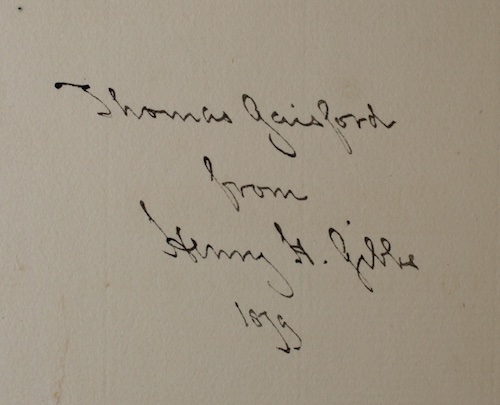 Thomas Gaisford
from
Henry H. Gibbs
1879